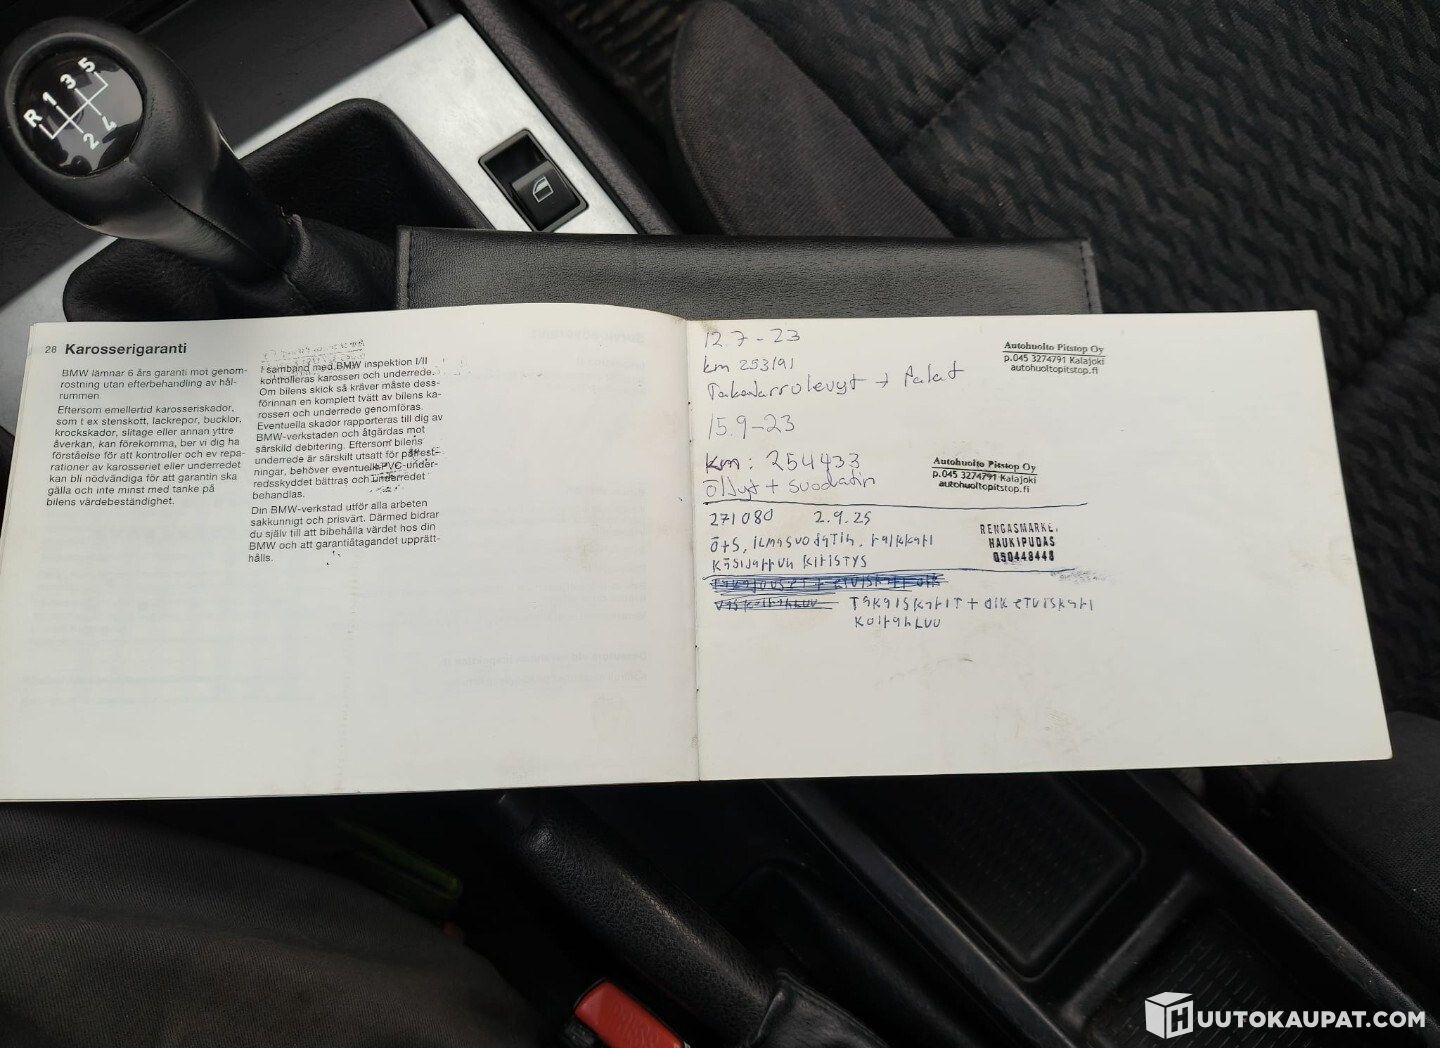 R 1 3 5
2 4
28 Karosserigaranti
BMW lämnar 6 års garanti mot genom-
rostning utan efterbehandling av hål-
rummen.
Eftersom emellertid karosseriskador,
som t ex stenskott, lackrepor, bucklor,
krockskador, slitage eller annan yttre
åverkan, kan förekomma, ber vi dig ha
förståelse för att kontroller och ev repa-
rationer av karosseriet eller underredet
kan bli nödvändiga för att garantin ska
gälla och inte minst med tanke på
bilens värdebeständighet.
I samband med BMW inspektion I/II
kontrolleras karossen och underrede.
Om bilens skick så kräver måste dess-
förinnan en komplett tvätt av bilens ka-
rossen och underrede genomföras.
Eventuella skador rapporteras till dig av
BMW-verkstaden och åtgärdas mot
särskild debitering. Eftersom bilens
underrede är särskilt utsatt för påfrest-
ningar, behöver eventuellt PVC-under-
redsskyddet bättras och underredet
behandlas.
Din BMW-verkstad utför alla arbeten
sakkunnigt och prisvärt. Därmed bidrar
du själv till att bibehålla värdet hos din
BMW och att garantiåtagandet upprätt-
hålls.
12.7-23
km 253191
Takajarrulevyt + Palat
Autohuolto Pitstop Oy
p.045 3274791 Kalajoki
autohuoltopitstop.fi
15.9-23
km: 254433
öljyt + suodatin
Autohuolto Pitstop Oy
p.045 3274791 Kalajoki
autohuoltopitstop.fi
271080 2.9.25
ö+s, ilmasuodatin, raikkari
Käsijarrun kiristys
RENGASMARKET
HAUKIPUDAS
050448448
Takaiskarit + oik etuiskari
koiranluu
HUUTOKAUPAT.COM